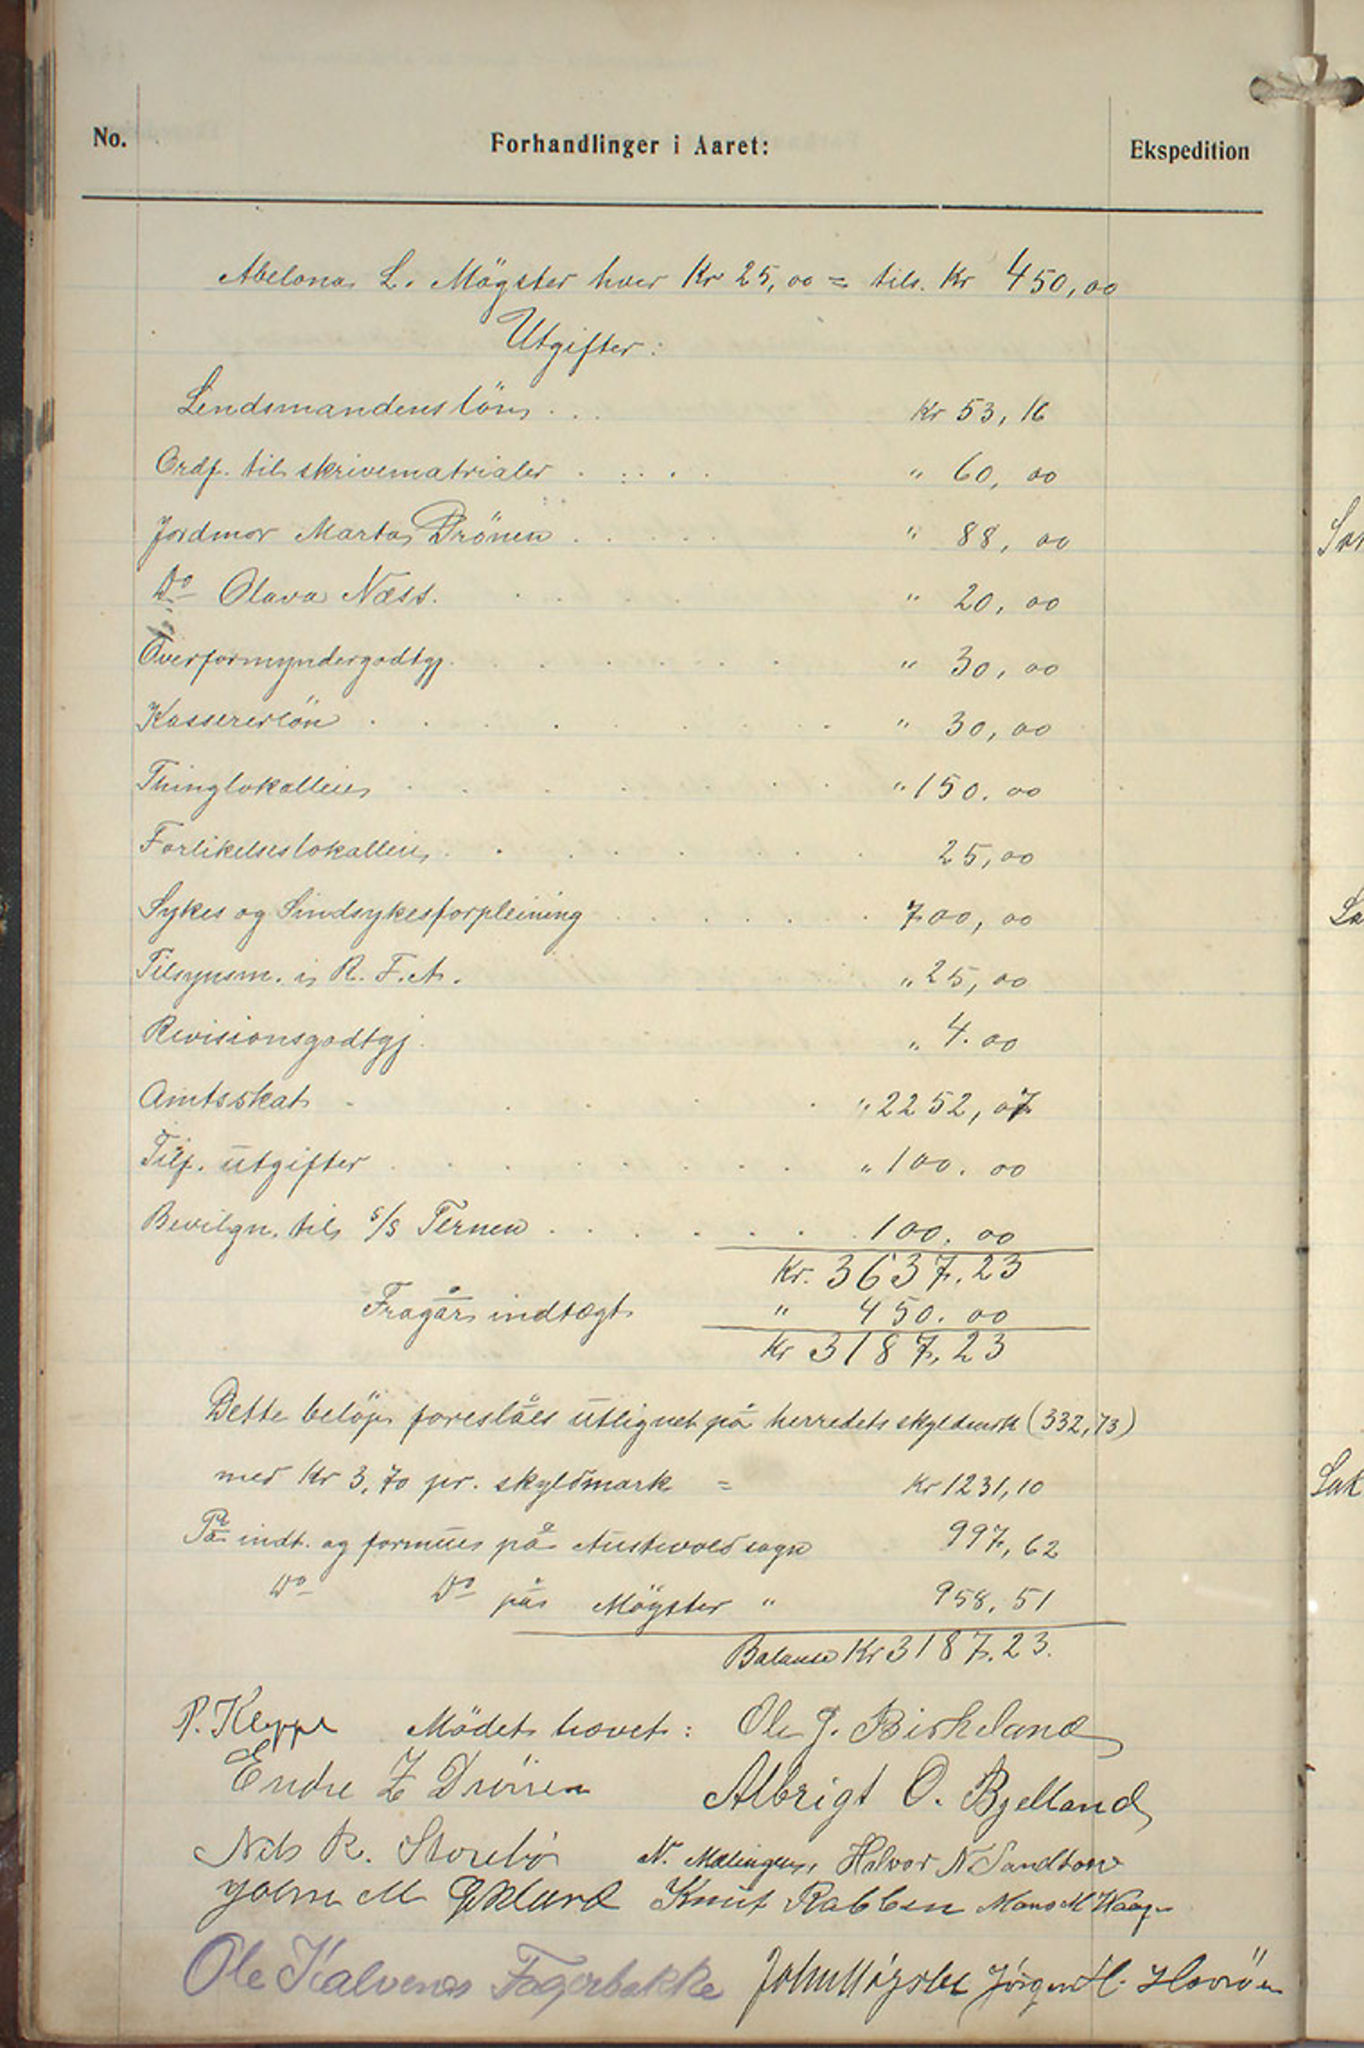 No. Forhandlinger i Aaret: Ekspedition
Abelona L. Mögster hver Kr 25,00 = tils. Kr 450,00
Utgifter:
Lendsmandens løn . . . Kr 53,16
Ordf. til skrivematrialer . . . . " 60,00
Jordmor Marta Drönen . . . . . " 88,00
Do Olava Næss. . . . . " 20,00
Overformyndergodtgj. . . . . . . " 30,00
Kassererlön . . . . . . . " 30,00
Thinglokalleie . . . . . . " 150.00
Forlikelseslokalleie . . . . . . . 25,00
Sykes og Sindsykesforpleining . . . . . 700,00
Tilsynsm. i R. F. A. " 25,00
Revisionsgodtgj. " 4.00
Amtsskat . . . . . " 2252,07
Tilf. utgifter . . . . . . . " 100.00
Bevilgn. til s/s Ternen . . . . . . 100.00
Kr. 3637.23
Fragår indtægt " 450.00
Kr 3187,23
Dette belöp foreslåes utlignet på herredets skyldmrk (332,73)
med Kr 3,70 pr. skyldmark = Kr 1231,10
På indt. og formue på Austevold sogn 997,62
Do Do på Mögster " 958,51
Balanse Kr 3187.23.
P. Kleppe Mödet hævet: Ole J. Birkeland
Endre Z Drönen Albrigt O. Bjelland
Nils R. Storebø N. Mælingen, Halvor N Sandtorv
John M Eklund Knut Rabben Mons M Waage
Ole Kalvenes Fagerbakke John Møgster Jörgen H. Horsöen
Sak